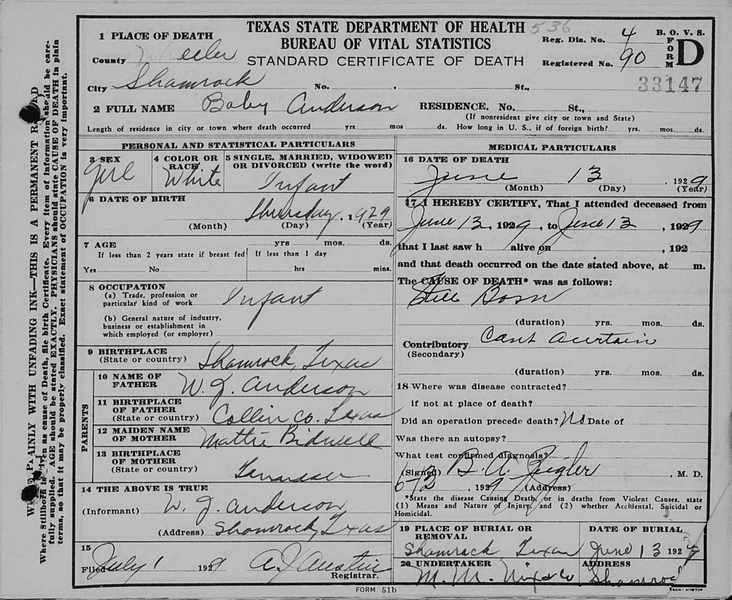 TEXAS STATE DEPARTMENT OF HEALTH
BUREAU OF VITAL STATISTICS
STANDARD CERTIFICATE OF DEATH
536
Reg. Dis. No. 4
Registered No. 90
B. O. V. S.
FORM D
33147
1 PLACE OF DEATH
County Wheeler
City Shamrock No. St.,
2 FULL NAME Baby Anderson RESIDENCE. No. St.,
(If nonresident give city or town and State)
Length of residence in city or town where death occurred yrs mos ds. How long in U. S., if of foreign birth? yrs. mos. ds.
PERSONAL AND STATISTICAL PARTICULARS
3 SEX Girl
4 COLOR OR RACE White
5 SINGLE, MARRIED, WIDOWED OR DIVORCED (write the word)
Infant
6 DATE OF BIRTH
Thursday, 1929
(Month) (Day) (Year)
7 AGE yrs mos ds.
If less than 2 years state if breast fed If less than 1 day
Yes No hrs mins.
8 OCCUPATION
(a) Trade, profession or particular kind of work Infant
(b) General nature of industry, business or establishment in which employed (or employer)
9 BIRTHPLACE
(State or country) Shamrock, Texas
PARENTS
10 NAME OF FATHER W. J. Anderson
11 BIRTHPLACE OF FATHER
(State or country) Collin Co. Texas
12 MAIDEN NAME OF MOTHER Mattie Bidwell
13 BIRTHPLACE OF MOTHER
(State or country)
14 THE ABOVE IS TRUE
(Informant) W. J. Anderson
(Address) Shamrock, Texas
15
Filed July 1 1929 A J Austin
Registrar.
MEDICAL PARTICULARS
16 DATE OF DEATH
June 13 1929
(Month) (Day) (Year)
17 I HEREBY CERTIFY, That I attended deceased from
June 13, 1929, to June 13, 1929
that I last saw h alive on , 192
and that death occurred on the date stated above, at m.
The CAUSE OF DEATH* was as follows:
Still Born
(duration) yrs. mos. ds.
Contributory Cant Acurtain
(Secondary)
(duration) yrs. mos. ds.
18 Where was disease contracted?
if not at place of death?
Did an operation precede death? No Date of
Was there an autopsy?
What test confirmed diagnosis?
(Signed) Zeigler, M. D.
1929 (Address)
*State the disease Causing Death, or in death from Violent Causes, state
(1) Means and Nature of Injury; and (2) whether Accidental, Suicidal or
Homicidal.
19 PLACE OF BURIAL OR REMOVAL
Shamrock Texas
DATE OF BURIAL
June 13 1929
20 UNDERTAKER
M. M. Nix & Co
ADDRESS
Shamrock
FORM 51b
WRITE PLAINLY WITH UNFADING INK—THIS IS A PERMANENT RECORD
Where Stillborn is given as cause of Death, file birth Certificate. Every item of information should be care-
fully supplied. AGE should be stated EXACTLY. PHYSICIANS should state CAUSE OF DEATH in plain
terms, so that it may be properly classified. Exact statement of OCCUPATION is very important.